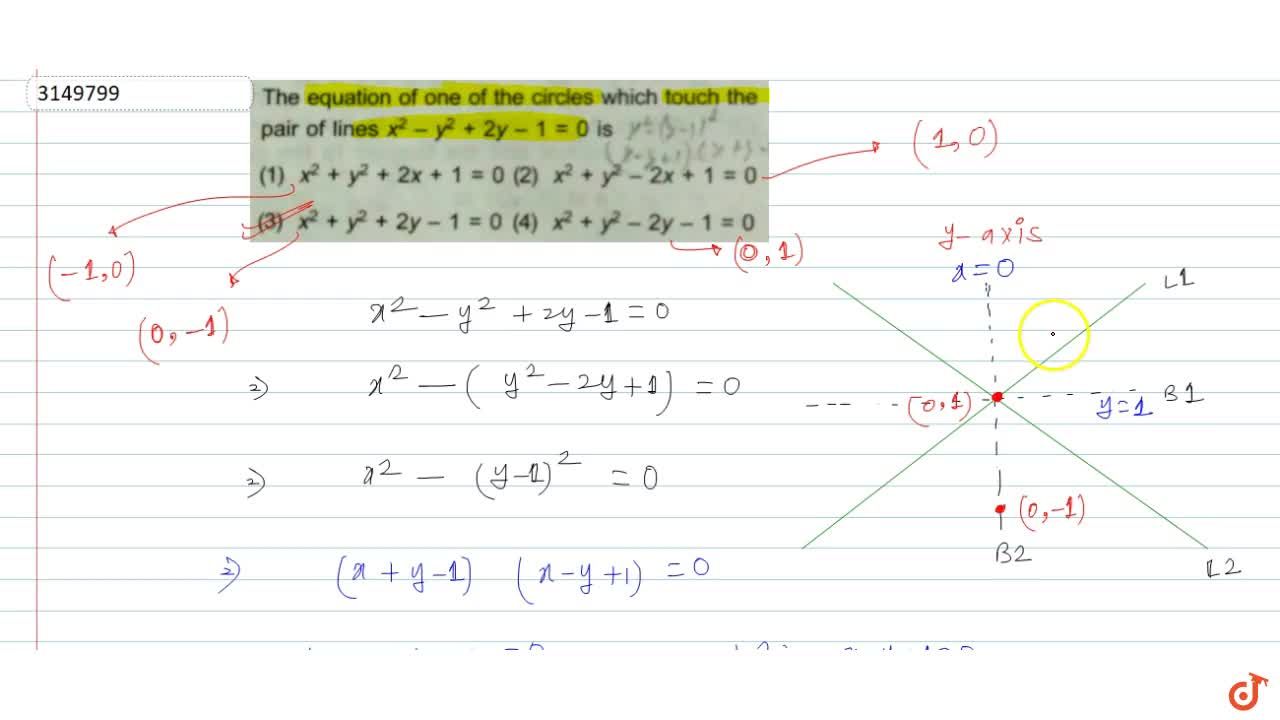 3149799
The equation of one of the circles which touch the
pair of lines x² – y² + 2y – 1 = 0 is
(1) x² + y² + 2x + 1 = 0 (2) x² + y² – 2x + 1 = 0
(3) x² + y² + 2y – 1 = 0 (4) x² + y² – 2y – 1 = 0
(1,0)
(-1,0)
(0,-1)
(0,1)
x² - y² + 2y - 1 = 0
⇒ x² - (y² - 2y + 1) = 0
⇒ x² - (y-1)² = 0
⇒ (x + y - 1) (x - y + 1) = 0
y-axis
x = 0
L1
(0,1)
y = 1
B1
(0,-1)
B2
L2